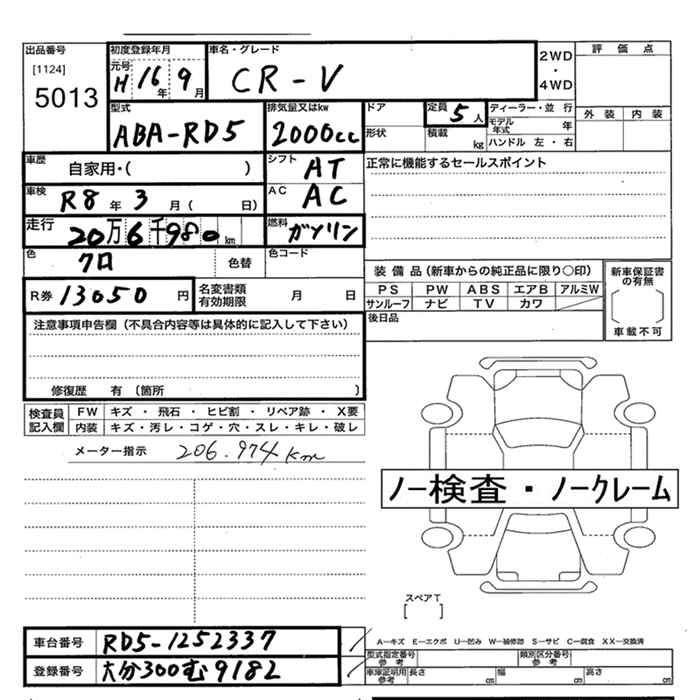 出品番号
[1124]
5013
初度登録年月
元号
H 16 年 9 月
車名・グレード
CR-V
2WD
・
4WD
評価点
外装 内装
型式
ABA-RD5
排気量又はkw
2000cc
ドア
形状
定員 5 人
積載 kg
ディーラー・並行
モデル年式 年
ハンドル 左・右
車歴
自家用・( )
シフト AT
正常に機能するセールスポイント
車検 R8 年 3 月 ( 日)
AC AC
走行 20万6千980 km
燃料 ガソリン
色 クロ 色替
色コード
装備品(新車からの純正品に限り○印)
PS PW ABS エアB アルミW
サンルーフ ナビ TV カワ
新車保証書の有無
車載不可
R券 13050 円
名変書類有効期限 月 日
後日品
注意事項申告欄(不具合内容等は具体的に記入して下さい)
修復歴 有(箇所 )
検査員記入欄
FW キズ・飛石・ヒビ割・リペア跡・X要
内装 キズ・汚レ・コゲ・穴・スレ・キレ・破レ
メーター指示 206.974km
ノー検査・ノークレーム
スペアT
[ ]
車台番号 RD5-1252337
登録番号 大分300む9182
A―キズ E―エクボ U―凹み W―補修跡 S―サビ C―腐食 XX―交換済
型式指定番号 参考
類別区分番号 参考
車庫証明用 参考 長さ cm 幅 cm 高さ cm